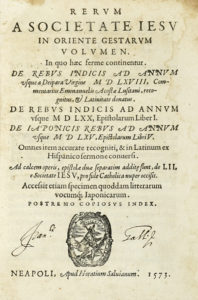 RERVM
A SOCIETATE IESV
IN ORIENTE GESTARVM
VOLVMEN.
In quo hæc ferme continentur.
DE REBVS INDICIS AD ANNVM
vsque a Deipara Virgine M D LXVIII. Com-
mentarius Emmanuelis Acostæ Lusitani, reco-
gnitus, & Latinitate donatus.
DE REBVS INDICIS AD ANNVM
vsque M D LXX, Epistolarum Liber I.
DE IAPONICIS REBVS AD ANNVM
vsque M D LXV. Epistolarum Libri V.
Omnes item accurate recogniti, & in Latinum ex
Hispanico sermone conuersi.
Ad calcem operis, epistolæ duæ separatim additæ sunt, de LII,
e Societate IESV, pro fide Catholica nuper occisis.
Accessit etiam specimen quoddam litterarum
vocumq; Iaponicarum.
POSTREMO COPIOSVS INDEX.
NEAPOLI, Apud Horatium Saluianum. 1573.